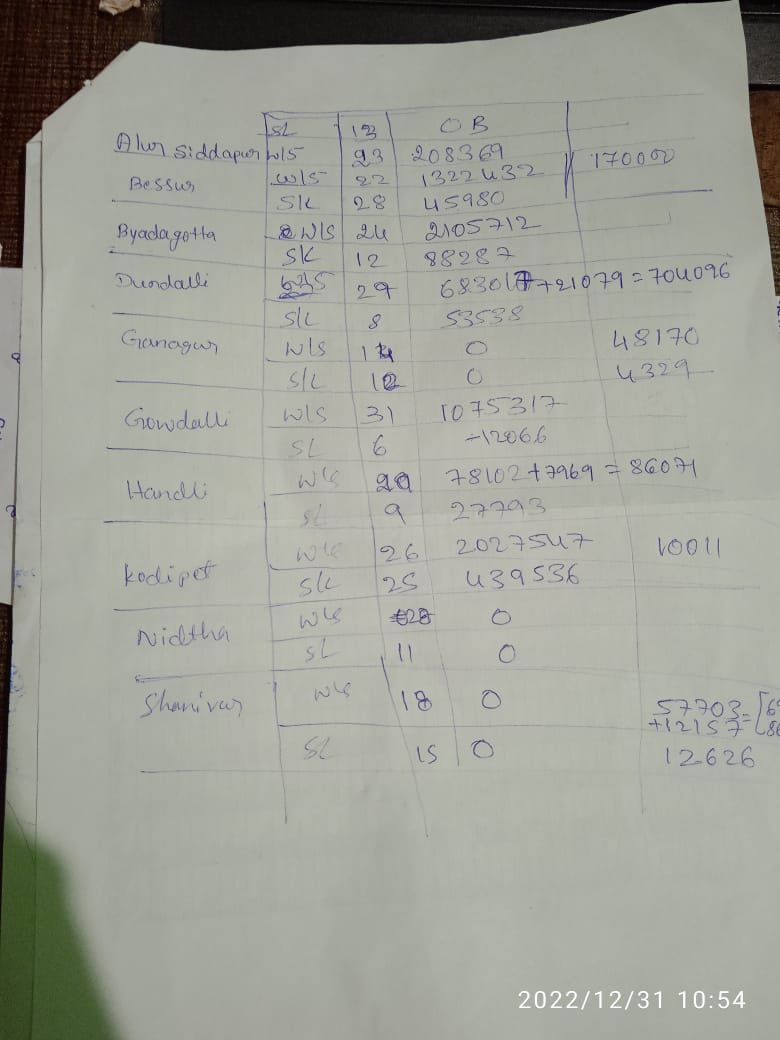 SL 13 OB
Alur Siddapur W/S 23 208369 170000
Bessur W/S 22 1322432
S/L 28 45980
Byadagotta W/S 24 2105712
S/L 12 88287
Dundalli 29 683017+21079=704096
S/L 8 53538
Ganagur W/S 14 0 48170
S/L 12 0 4329
Gowdalli W/S 31 1075317
SL 6 -12066
Handli W/S 29 78102+7969=86071
SL 9 27793
Kodipet W/S 26 2027547 10011
S/L 25 439536
Nidtha W/S 28 0
SL 11 0
Shanivar W/S 18 0 57703
+12157=
SL 15 0 12626
2022/12/31 10:54